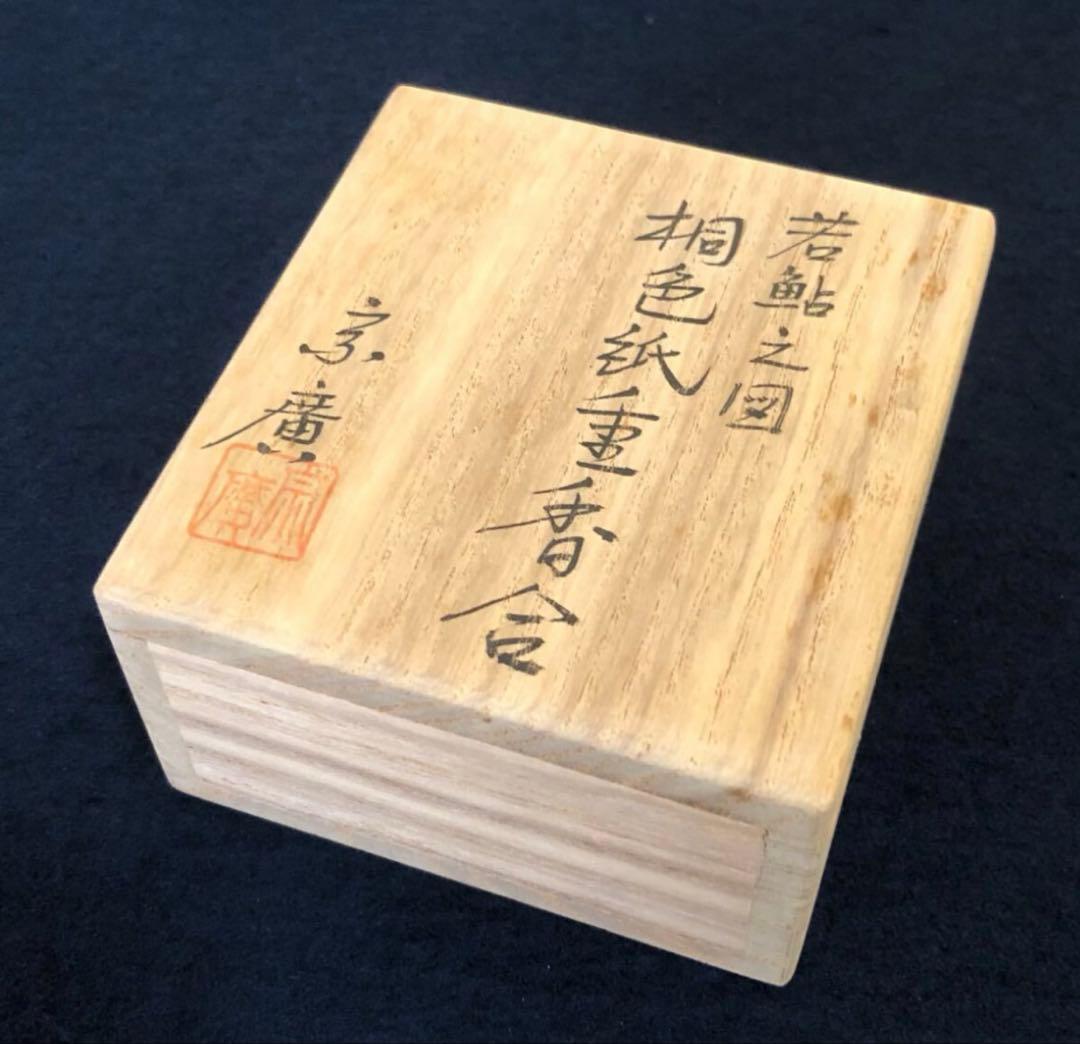 若鮎之図
桐色紙重香合
宗廣